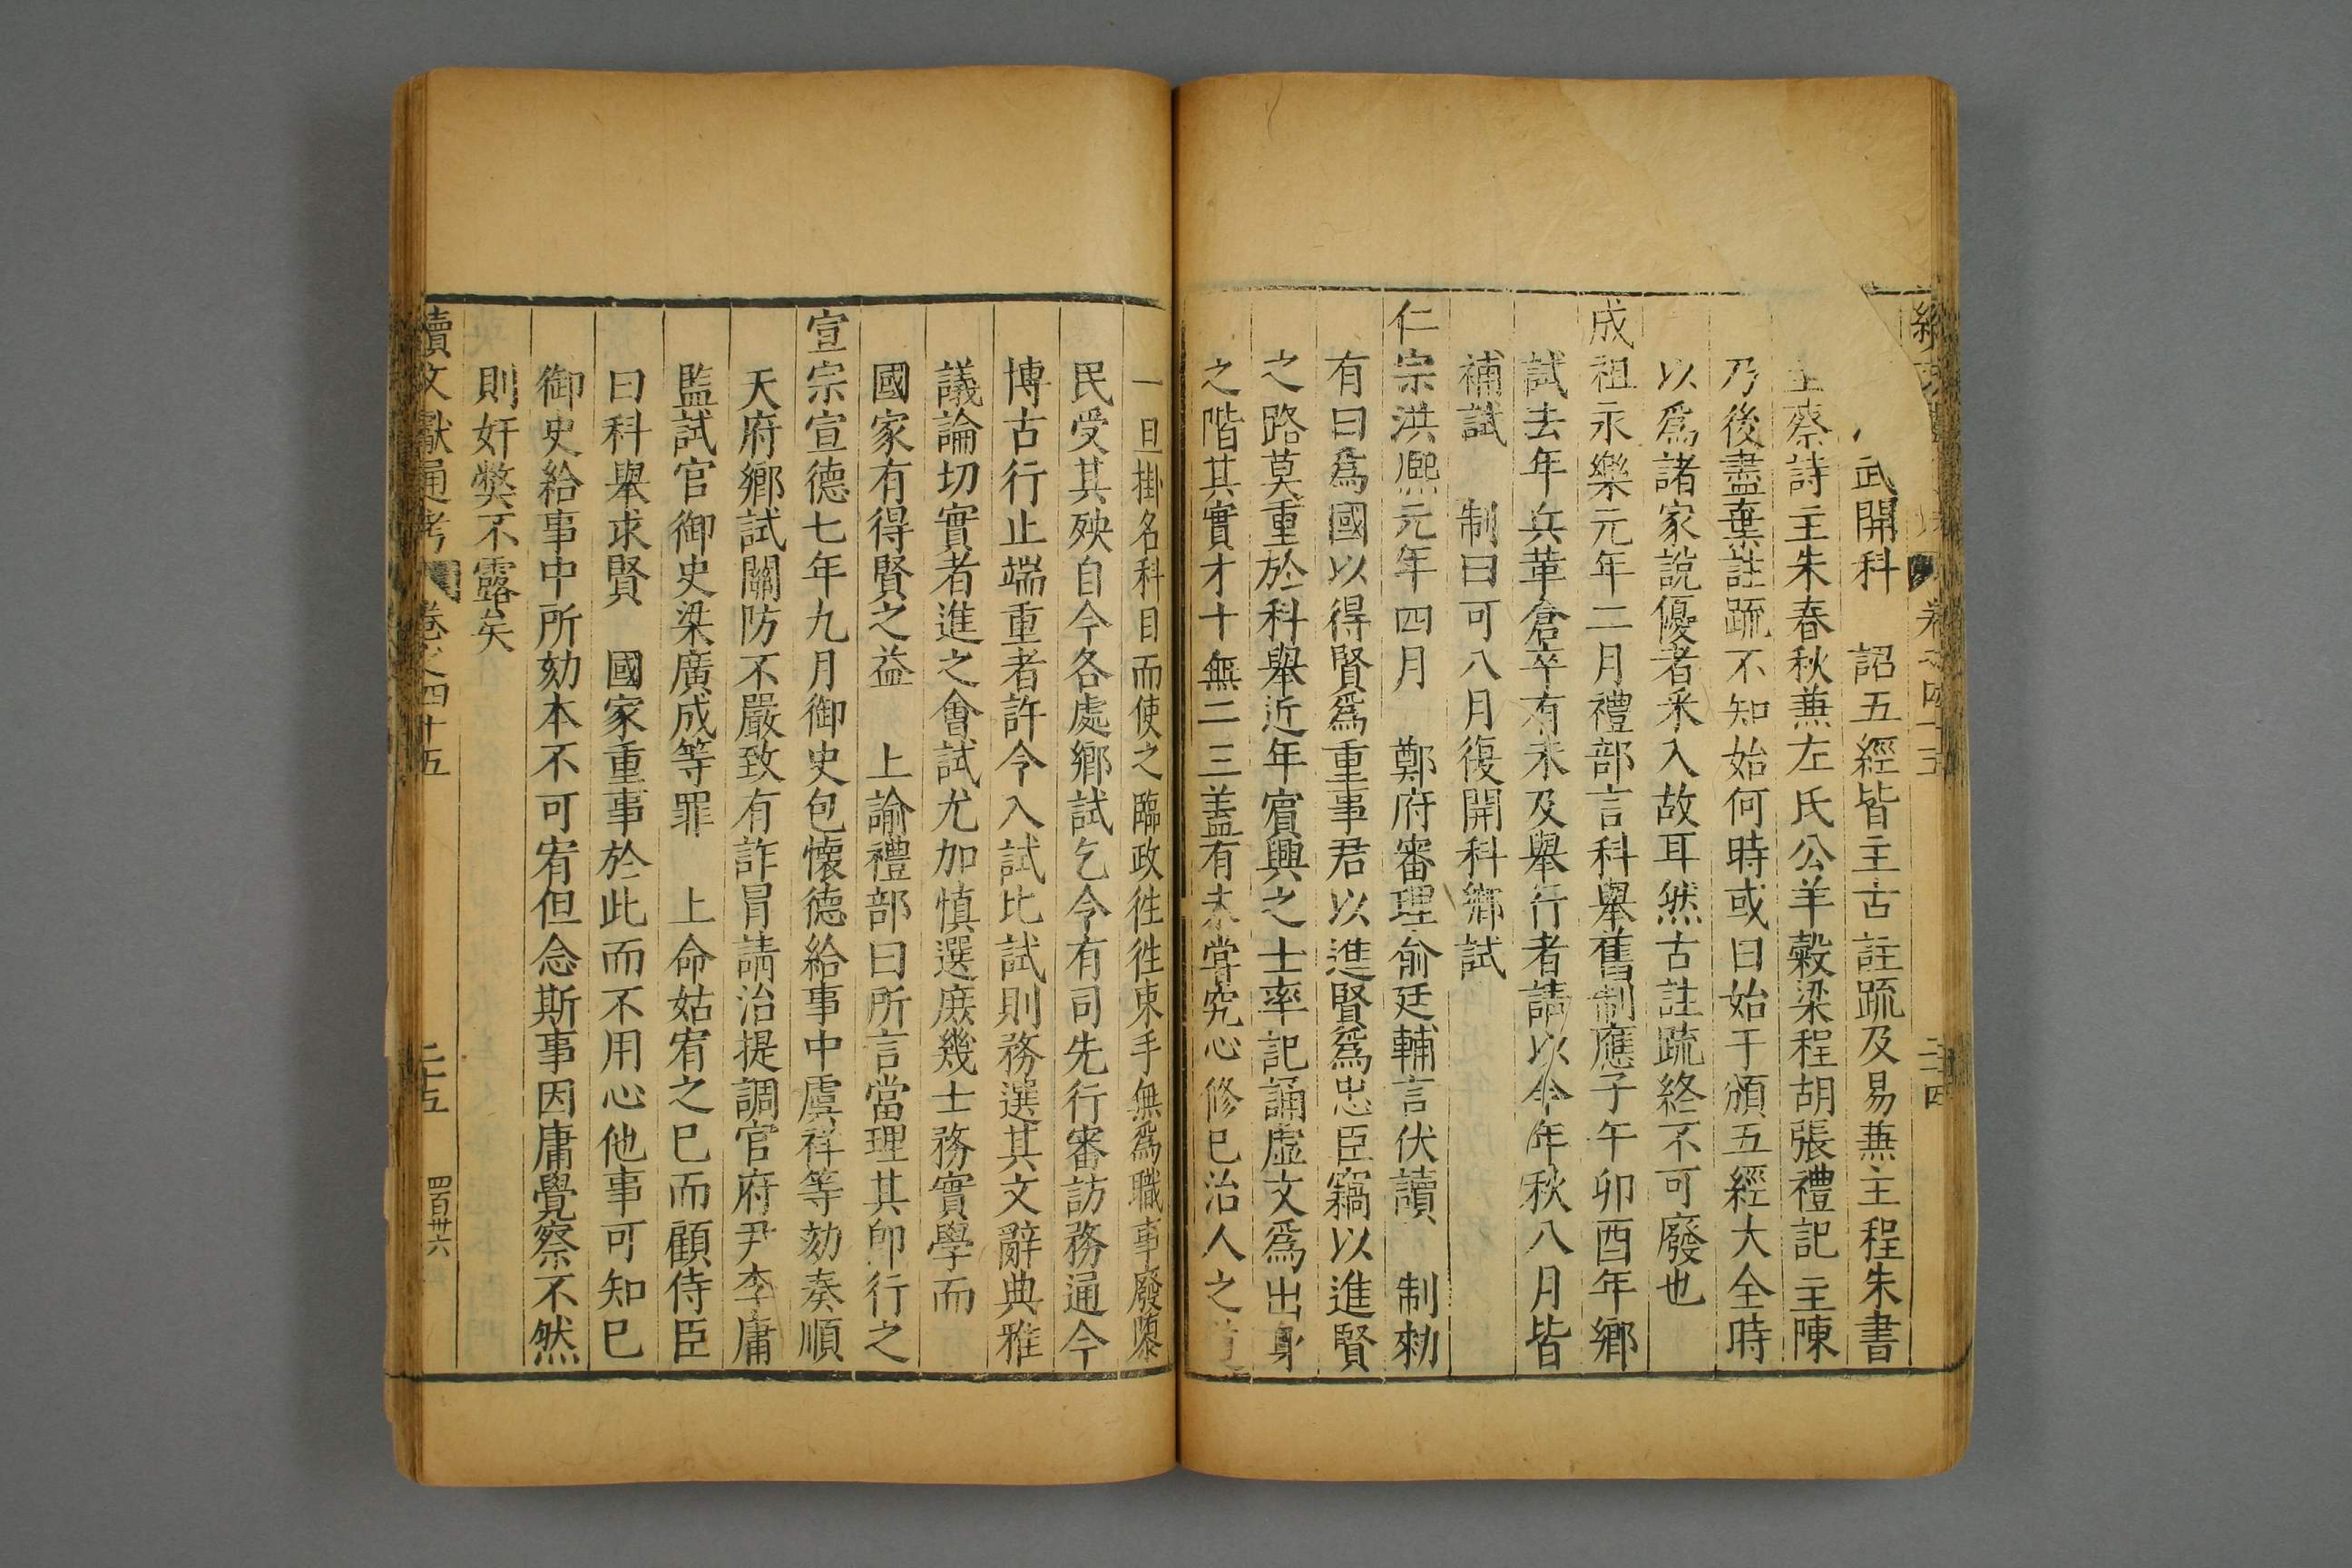 武開科 詔五經皆主古註疏及易兼主程朱書
主蔡詩主朱春秋兼左氏公羊穀梁程胡張禮記主陳
乃後盡棄註疏不知始何時或曰始于頒五經大全時
以爲諸家說優者采入故耳然古註疏終不可廢也
成祖永樂元年二月禮部言科舉舊制應子午卯酉年鄉
試去年兵革倉卒有未及舉行者請以今年秋八月皆
補試 制曰可八月復開科鄉試
仁宗洪熈元年四月 鄭府審理俞廷輔言伏讀 制勑
有曰爲國以得賢爲重事君以進賢爲忠臣竊以進賢
之路莫重於科舉近年賓興之士率記誦虛文爲出身
之階其實才十無二三蓋有未嘗究心修已治人之道
一旦掛名科目而使之臨政徃徃束手無爲職事廢隳
民受其殃自今各處鄉試乞令有司先行審訪務通今
博古行止端重者許令入試比試則務選其文辭典雅
議論切實者進之會試尤加慎選庶幾士務實學而
國家有得賢之益 上諭禮部曰所言當理其卽行之
宣宗宣德七年九月御史包懷德給事中虞祥等劾奏順
天府鄉試關防不嚴致有詐冐請治提調官府尹李庸
監試官御史梁廣成等罪 上命姑宥之已而顧侍臣
曰科舉求賢 國家重事於此而不用心他事可知已
御史給事中所劾本不可宥但念斯事因庸覺察不然
則奸獘不露矣
續文獻通考 卷之四十五 二十五 四百卅六